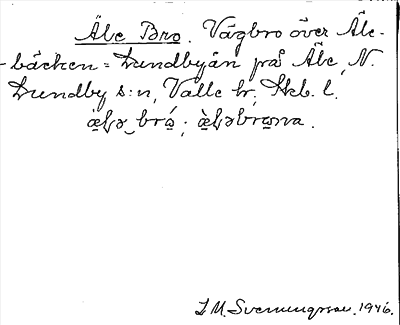 Äle Bro. Vägbro över Äle-
bäcken = Lundbyån på Äle, N.
Lundby s:n, Valle hr, Skb. l.
ä̱l̯ə bró̱ ; ä̱̀l̯əbro̱na.
I M. Svenungsson. 1946.